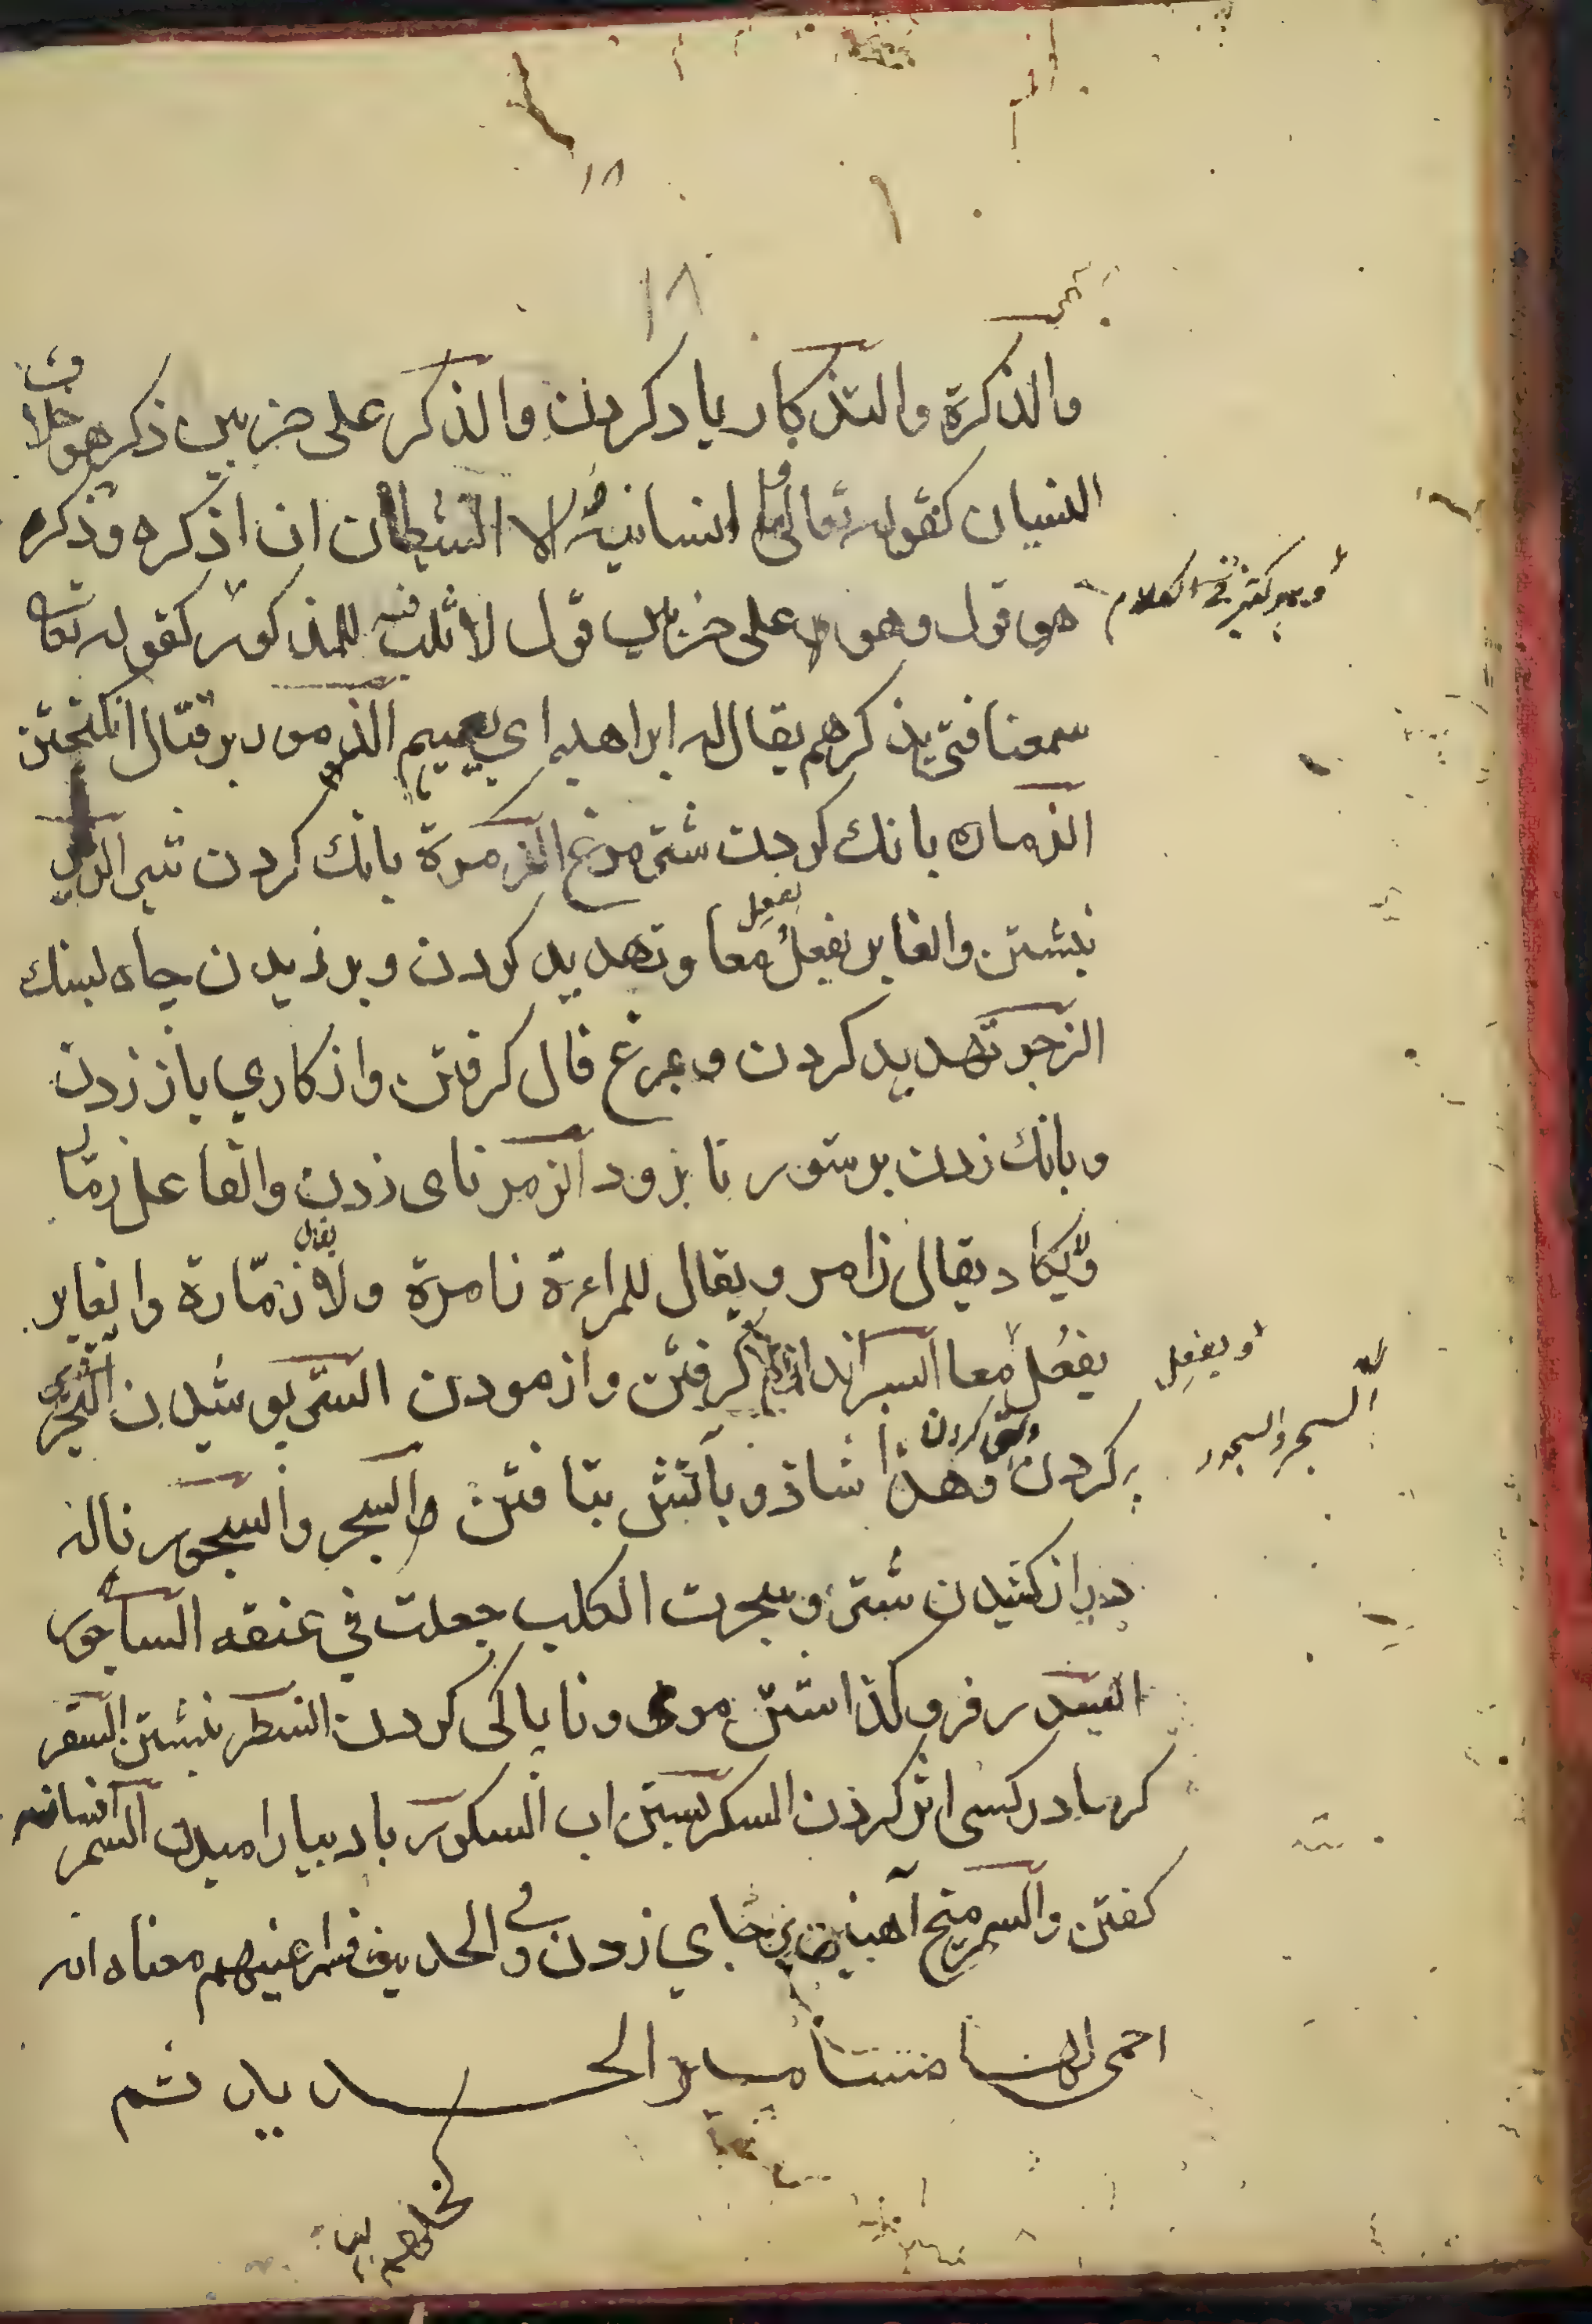 ١٨
١٨
والذكرة والتذكار ياد كردن والذكر على ضربين ذكر هو خلاف
النسيان كقوله تعالى وما انسانيه الا الشيطان ان اذكره وذكر
هو قول وهو على ضربين قول لا ثلب فيه للمذكور كقوله تعا
سمعنا فتى يذكرهم يقال له ابراهيم اي يعيبهم الذمر بر قتال انكيختن
الزمار بانك كردن شتر مرغ الزمرة بانك كردن شير الزبر
نبشتن والغابر يفعل يفعل معا وتهديد كردن وبرزيدن چاه لبنك
الزجر تهديد كردن وبمرغ فال كرفتن واز كاري باز زدن
وبانك زدن بر ستور تا بزود الزمر ناى زدن والفاعل زمار
ولا يكاد يقال زامر ويقال للمراءة زامرة ولا يقال زمّارة والغابر
يفعُل معا السبر اندازه كرفتن وازمودن الستر بوشيدن السجر
او يفعِل
السجر والسجور
پر كردن وهذا شاذ وبآتش بتافتن والسجر والسجور ناله
دراز كشيدن شتر وسجرت الكلب جعلت في عنقه الساجور
السدر فرو كذاشتن موى ونا باكى كردن السطر نبشتن السفر
كرما در كسى اثر كردن السكر بستن اب السكور باد بيارا ميدن السمر افسانه
كفتن والسمر ميخ آهنين بر جاي زدن وفي الحديث فسمر اعينهم معناه انه
احمى لها مسامير الحديد ثم
كحلهم بها